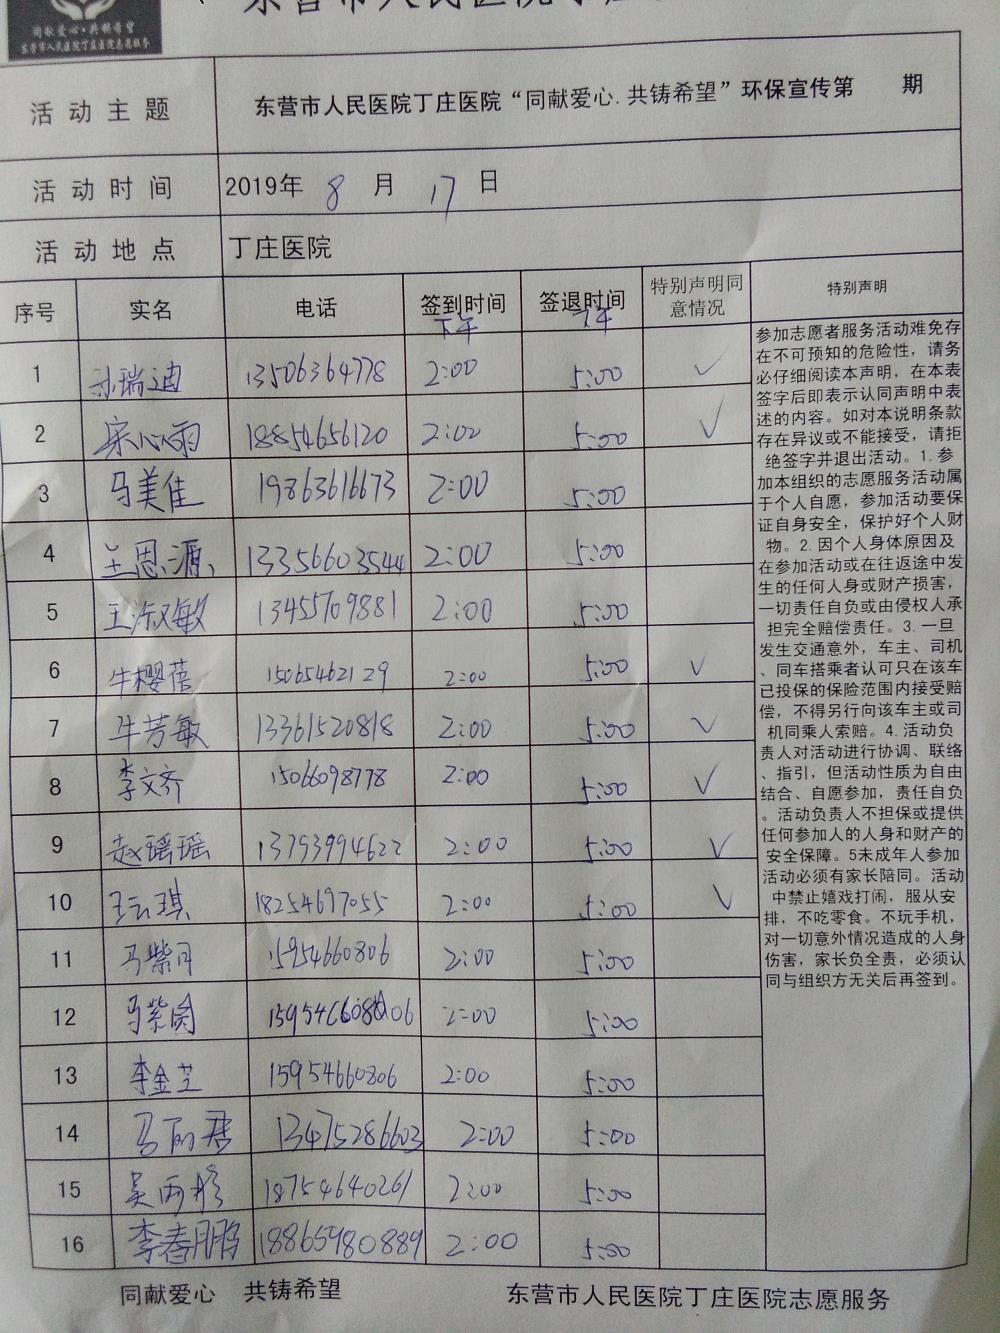 同献爱心·共铸希望
东营市人民医院丁庄医院志愿服务
东营市人民医院丁庄
活动主题 东营市人民医院丁庄医院“同献爱心.共铸希望”环保宣传第 期
活动时间 2019年 8 月 17 日
活动地点 丁庄医院
序号 实名 电话 签到时间 签退时间 特别声明同意情况 特别声明
下午 下午
1 孙瑞迪 13506364778 2:00 5:00 ✓
2 宋心雨 18854656120 2:00 5:00 ✓
3 马美佳 19863616673 2:00 5:00
4 王恩源 13356603544 2:00 5:00
5 王淑敏 13455709881 2:00 5:00
6 牛樱蓓 15065462129 2:00 5:00 ✓
7 牛芳敏 13361520818 2:00 5:00 ✓
8 李文齐 15066098778 2:00 5:00 ✓
9 赵瑶瑶 13793994622 2:00 5:00 ✓
10 王云琪 18254697055 2:00 5:00 ✓
11 马紫月 15954660806 2:00 5:00
12 马紫 2:00 5:00
13 李金芝 15954660806 2:00 5:00
14 马丽君 13475286603 2:00 5:00
15 吴雨 18754640261 2:00 5:00
16 李春鹏 18865980889 2:00 5:00
参加志愿者服务活动难免存
在不可预知的危险性，请务
必仔细阅读本声明，在本表
签字后即表示认同声明中表
述的内容。如对本说明条款
存在异议或不能接受，请拒
绝签字并退出活动。1.参
加本组织的志愿服务活动属
于个人自愿，参加活动要保
证自身安全，保护好个人财
物。2.因个人身体原因及
在参加活动或在往返途中发
生的任何人身或财产损害，
一切责任自负或由侵权人承
担完全赔偿责任。3.一旦
发生交通意外，车主、司机
、同车搭乘者认可只在该车
已投保的保险范围内接受赔
偿，不得另行向该车主或司
机同乘人索赔。4.活动负
责人对活动进行协调、联络
、指引，但活动性质为自由
结合、自愿参加，责任自负
。活动负责人不担保或提供
任何参加人的人身和财产的
安全保障。5未成年人参加
活动必须有家长陪同。活动
中禁止嬉戏打闹，服从安
排，不吃零食。不玩手机，
对一切意外情况造成的人身
伤害，家长负全责，必须认
同与组织方无关后再签到。
同献爱心 共铸希望 东营市人民医院丁庄医院志愿服务